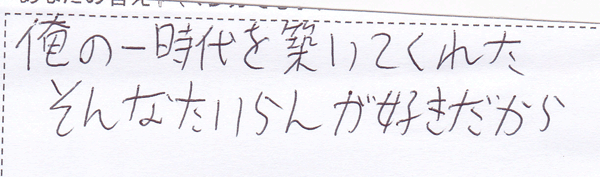 俺の一時代を築いてくれた
そんなたいらんが好きだから